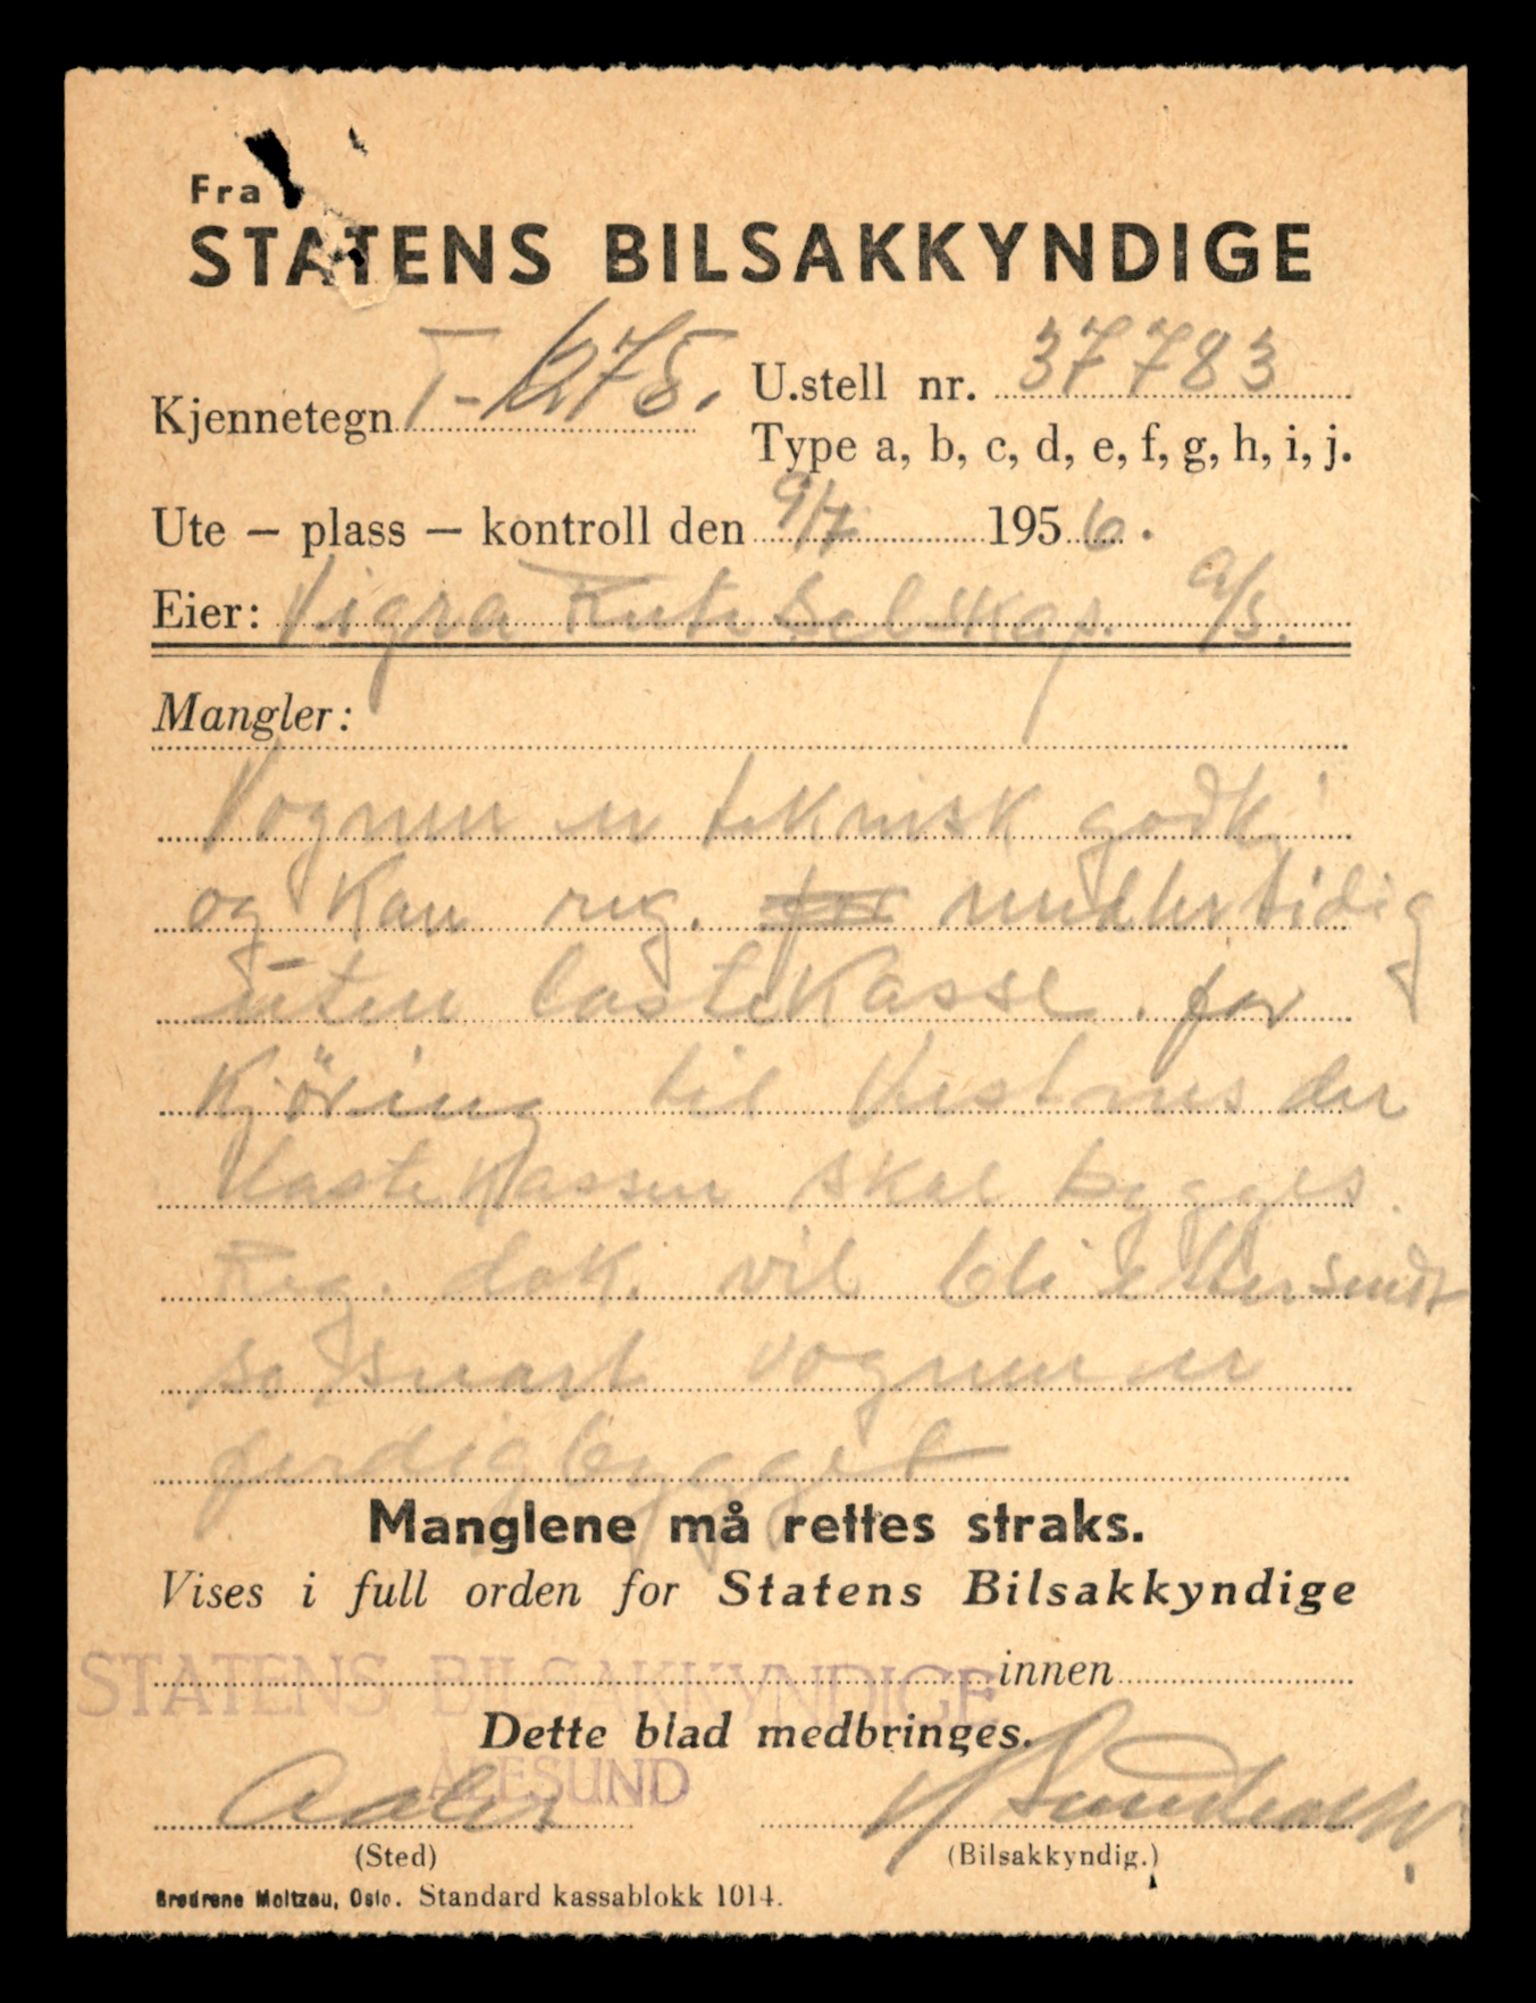 Fra
STATENS BILSAKKYNDIGE
Kjennetegn T-1275. U.stell nr. 37783
Type a, b, c, d, e, f, g, h, i, j.
Ute – plass – kontroll den 9/7 1956.
Eier: Vigra Ruteselskap. a/s.
Mangler:
Vognen er teknisk godk.
og kan reg. for midlertidig
uten lastekasse. for
kjöring til Vestnes der
lastekassen skal bygges.
Reg. dok. vil bli ettersendt
så snart vognen er
ferdigbygget
Manglene må rettes straks.
Vises i full orden for Statens Bilsakkyndige
innen
STATENS BILSAKKYNDIGE
Dette blad medbringes.
ÅLESUND
(Sted) (Bilsakkyndig.)
Brødrene Moltzau, Oslo. Standard kassablokk 1014.